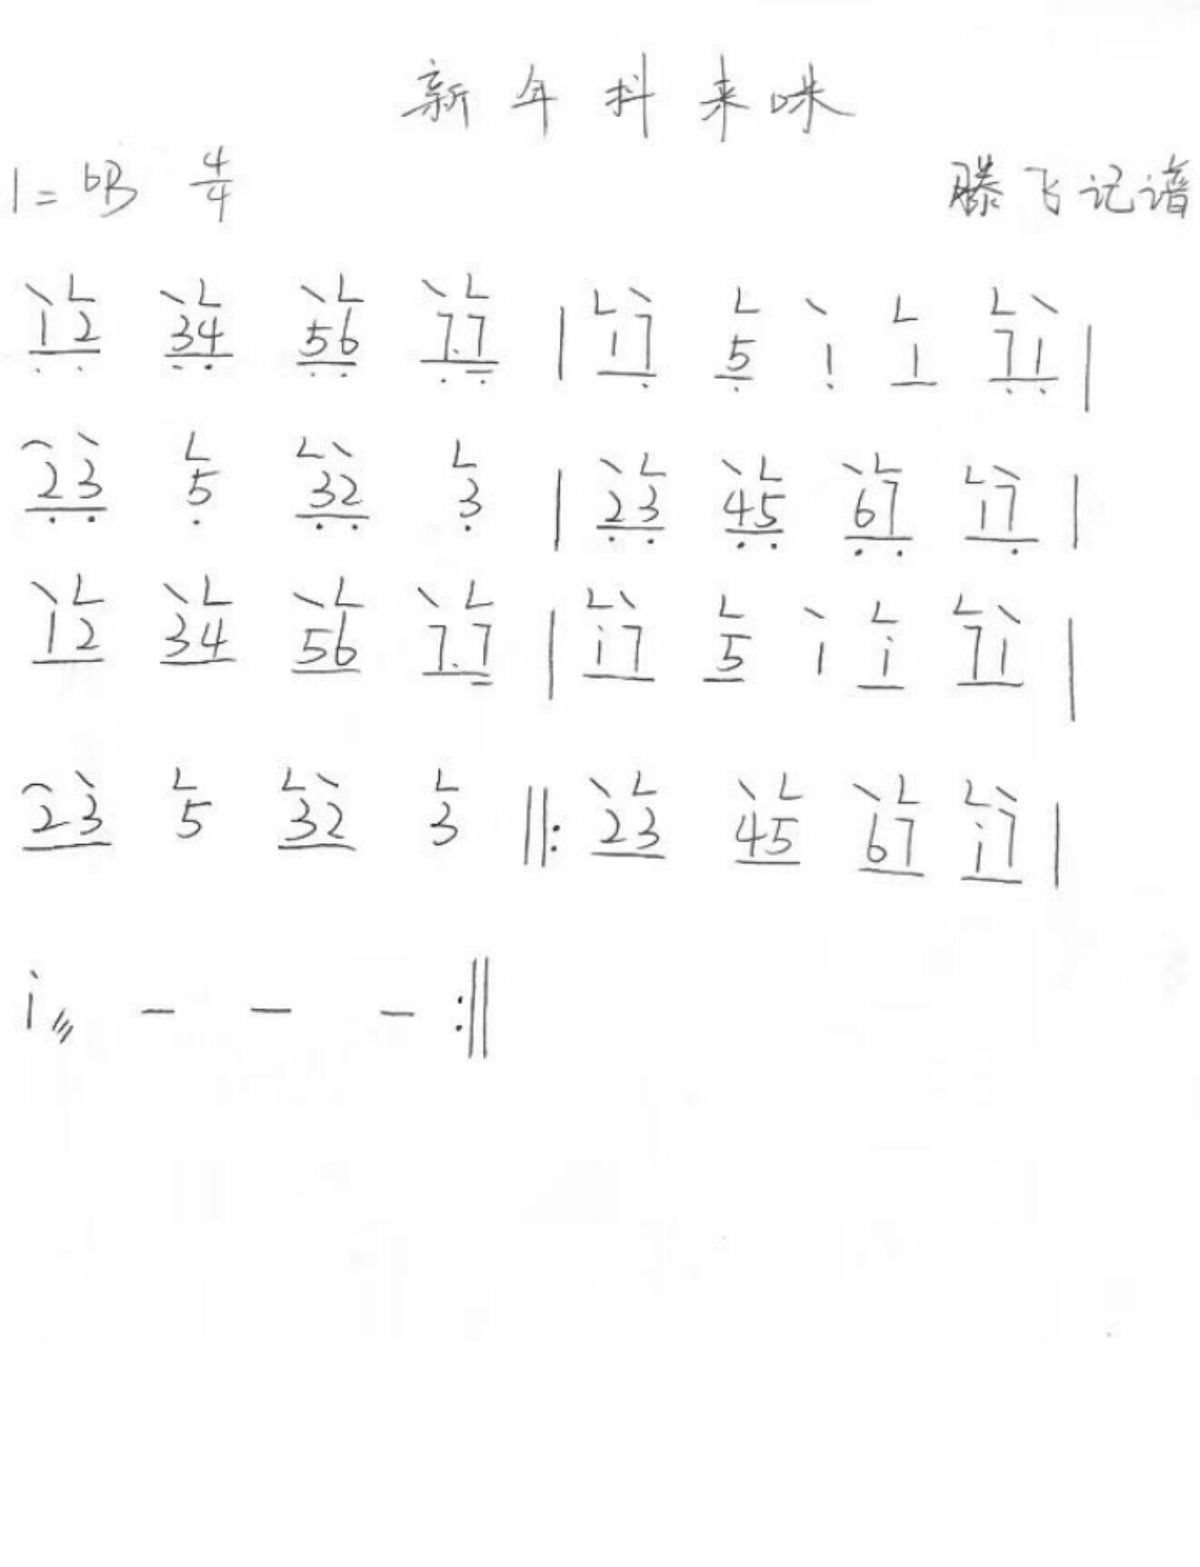 新年抖来咪
1=♭B 4/4 滕飞记谱
12 34 56 7.7 | 17 5 1 1 71 |
23 5 32 3 | 23 45 67 17 |
12 34 56 7.7 | i7 5 i i 7i |
23 5 32 3 ‖: 23 45 67 i7 |
i⫽ - - - :‖